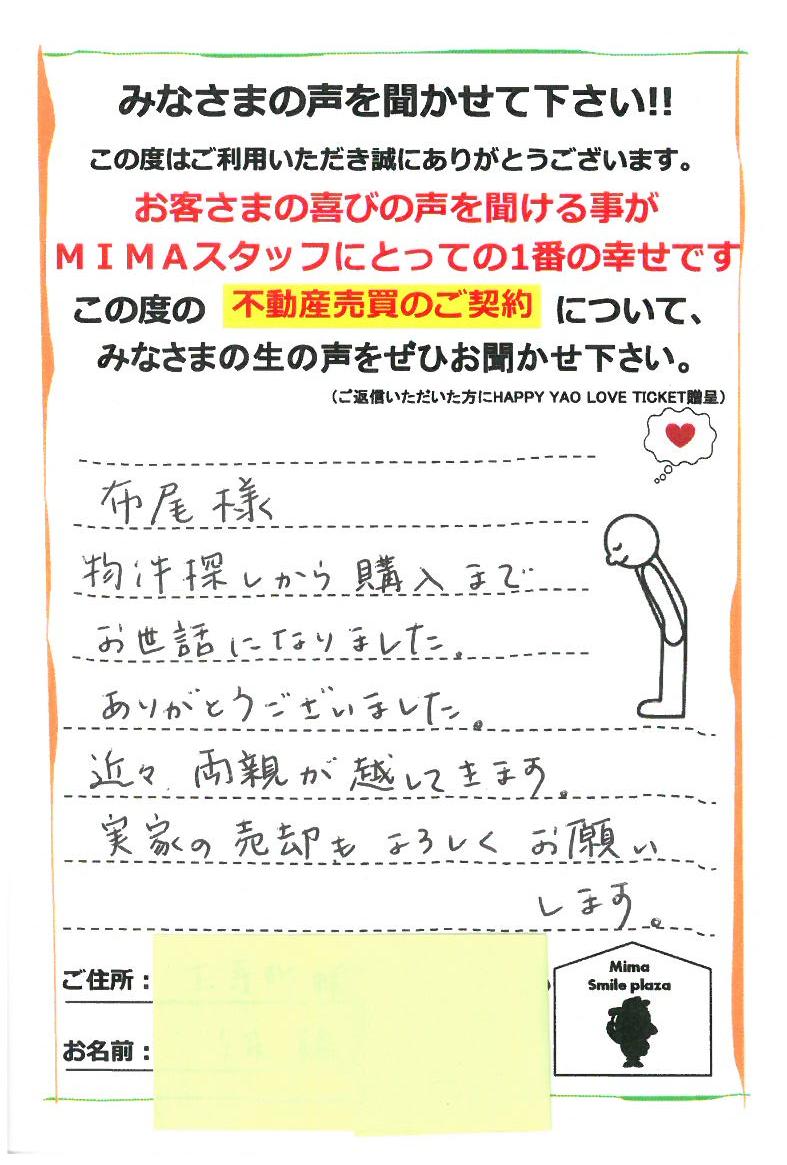 みなさまの声を聞かせて下さい!!
この度はご利用いただき誠にありがとうございます。
お客さまの喜びの声を聞ける事が
ＭＩＭＡスタッフにとっての1番の幸せです
この度の 不動産売買のご契約 について、
みなさまの生の声をぜひお聞かせ下さい。
(ご返信いただいた方にHAPPY YAO LOVE TICKET贈呈)
布尾様
物件探しから購入まで
お世話になりました。
ありがとうございました。
近々、両親が越してきます。
実家の売却もよろしくお願い
します。
ご住所：
お名前：
Mima
Smile plaza